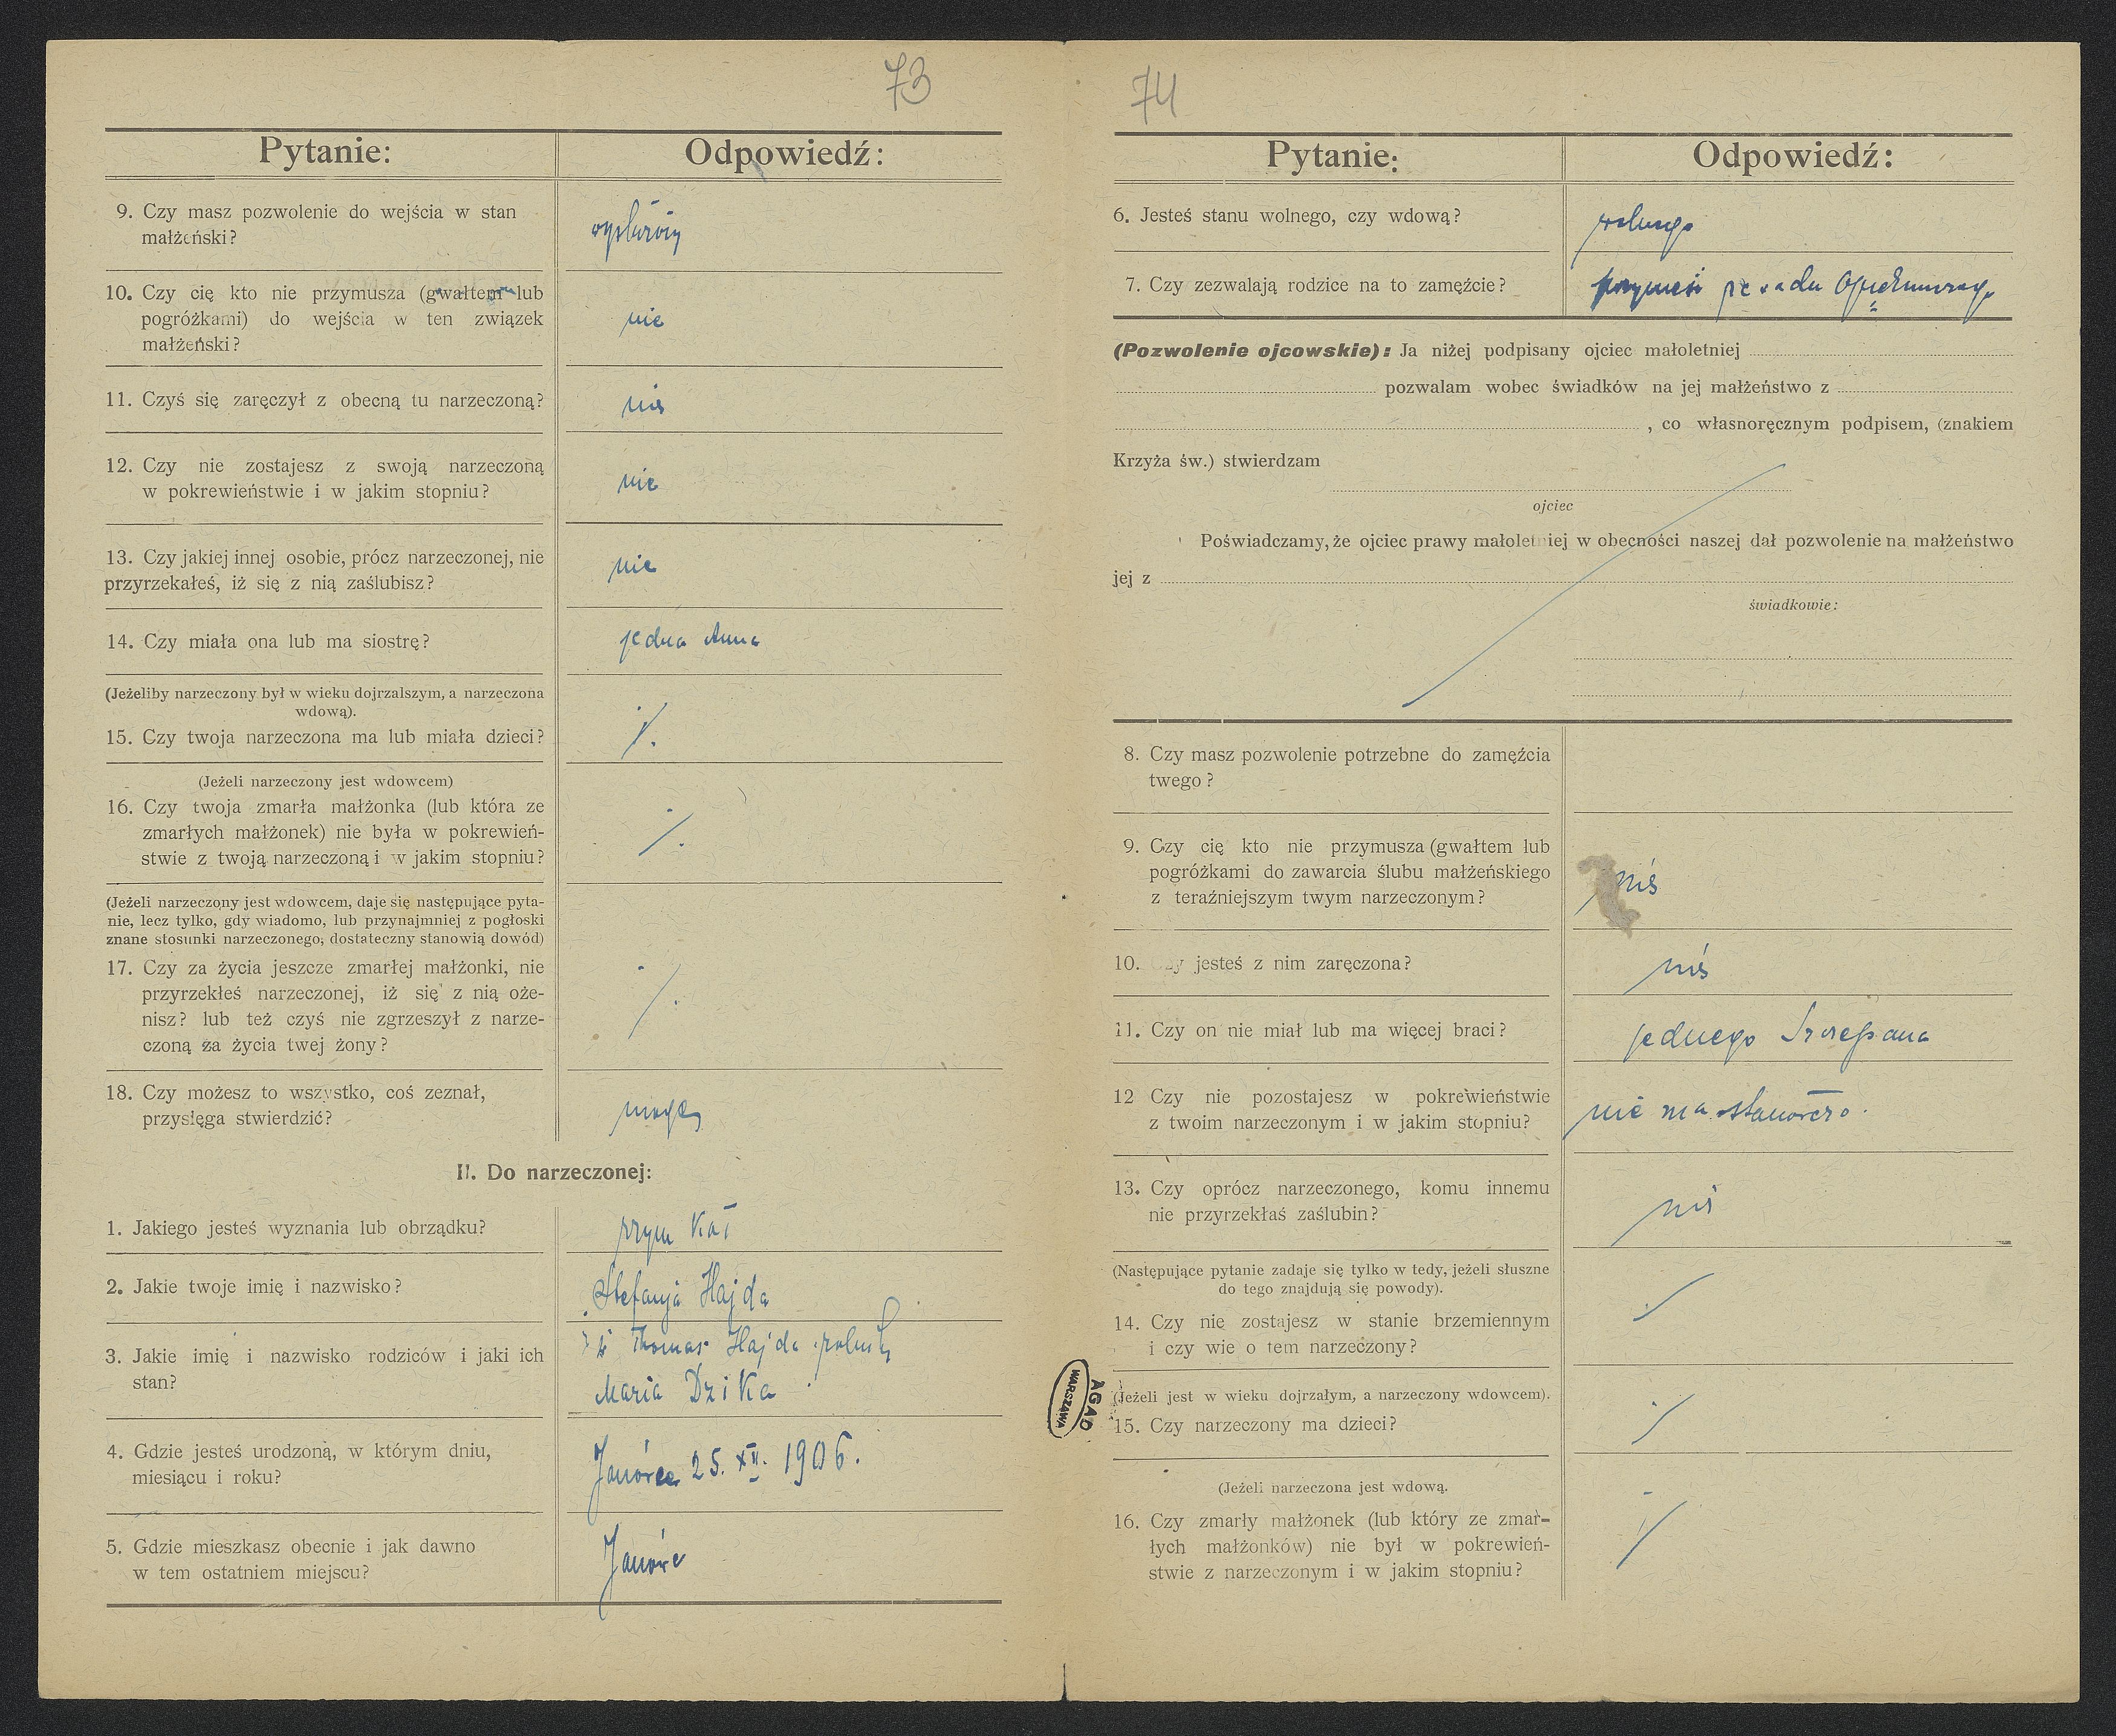 73
Pytanie:
Odpowiedź:
9. Czy masz pozwolenie do wejścia w stan
małżeński?
10. Czy cię kto nie przymusza (gwałtem lub
pogróżkami) do wejścia w ten związek
małżeński?
nie
11. Czyś się zaręczył z obecną tu narzeczoną?
nie
12. Czy nie zostajesz z swoją narzeczoną
w pokrewieństwie i w jakim stopniu?
nie
13. Czy jakiej innej osobie, prócz narzeczonej, nie
przyrzekałeś, iż się z nią zaślubisz?
nie
14. Czy miała ona lub ma siostrę?
jedna Anna
(Jeżeliby narzeczony był w wieku dojrzalszym, a narzeczona
wdową).
15. Czy twoja narzeczona ma lub miała dzieci?
(Jeżeli narzeczony jest wdowcem)
16. Czy twoja zmarła małżonka (lub która ze
zmarłych małżonek) nie była w pokrewień-
stwie z twoją narzeczoną i w jakim stopniu?
(Jeżeli narzeczony jest wdowcem, daje się następujące pyta-
nie, lecz tylko, gdy wiadomo, lub przynajmniej z pogłoski
znane stosunki narzeczonego, dostateczny stanowią dowód)
17. Czy za życia jeszcze zmarłej małżonki, nie
przyrzekłeś narzeczonej, iż się z nią oże-
nisz? lub też czyś nie zgrzeszył z narze-
czoną za życia twej żony?
18. Czy możesz to wszystko, coś zeznał,
przysięga stwierdzić?
mogę
II. Do narzeczonej:
1. Jakiego jesteś wyznania lub obrządku?
rzym kat
2. Jakie twoje imię i nazwisko?
Stefanja Hajda
3. Jakie imię i nazwisko rodziców i jaki ich
stan?
Thomas Hajda rolnik
Maria Dzika
4. Gdzie jesteś urodzoną, w którym dniu,
miesiącu i roku?
Janówce 25. XII. 1906.
5. Gdzie mieszkasz obecnie i jak dawno
w tem ostatniem miejscu?
Janówe
74
Pytanie:
Odpowiedź:
6. Jesteś stanu wolnego, czy wdową?
wolnego
7. Czy zezwalają rodzice na to zamęźcie?
(Pozwolenie ojcowskie): Ja niżej podpisany ojciec małoletniej
pozwalam wobec świadków na jej małżeństwo z
, co własnoręcznym podpisem, (znakiem
Krzyża św.) stwierdzam
ojciec
Poświadczamy, że ojciec prawy małoletniej w obecności naszej dał pozwolenie na małżeństwo
jej z
świadkowie:
8. Czy masz pozwolenie potrzebne do zamęźcia
twego?
9. Czy cię kto nie przymusza (gwałtem lub
pogróżkami do zawarcia ślubu małżeńskiego
z teraźniejszym twym narzeczonym?
nie
10. Czy jesteś z nim zaręczona?
nie
11. Czy on nie miał lub ma więcej braci?
jednego Szczepana
12 Czy nie pozostajesz w pokrewieństwie
z twoim narzeczonym i w jakim stopniu?
nie ma
13. Czy oprócz narzeczonego, komu innemu
nie przyrzekłaś zaślubin?
nie
(Następujące pytanie zadaje się tylko w tedy, jeżeli słuszne
do tego znajdują się powody).
14. Czy nie zostajesz w stanie brzemiennym
i czy wie o tem narzeczony?
AGAD
WARSZAWA
(Jeżeli jest w wieku dojrzałym, a narzeczony wdowcem).
15. Czy narzeczony ma dzieci?
(Jeżeli narzeczona jest wdową.
16. Czy zmarły małżonek (lub który ze zmar-
łych małżonków) nie był w pokrewień-
stwie z narzeczonym i w jakim stopniu?